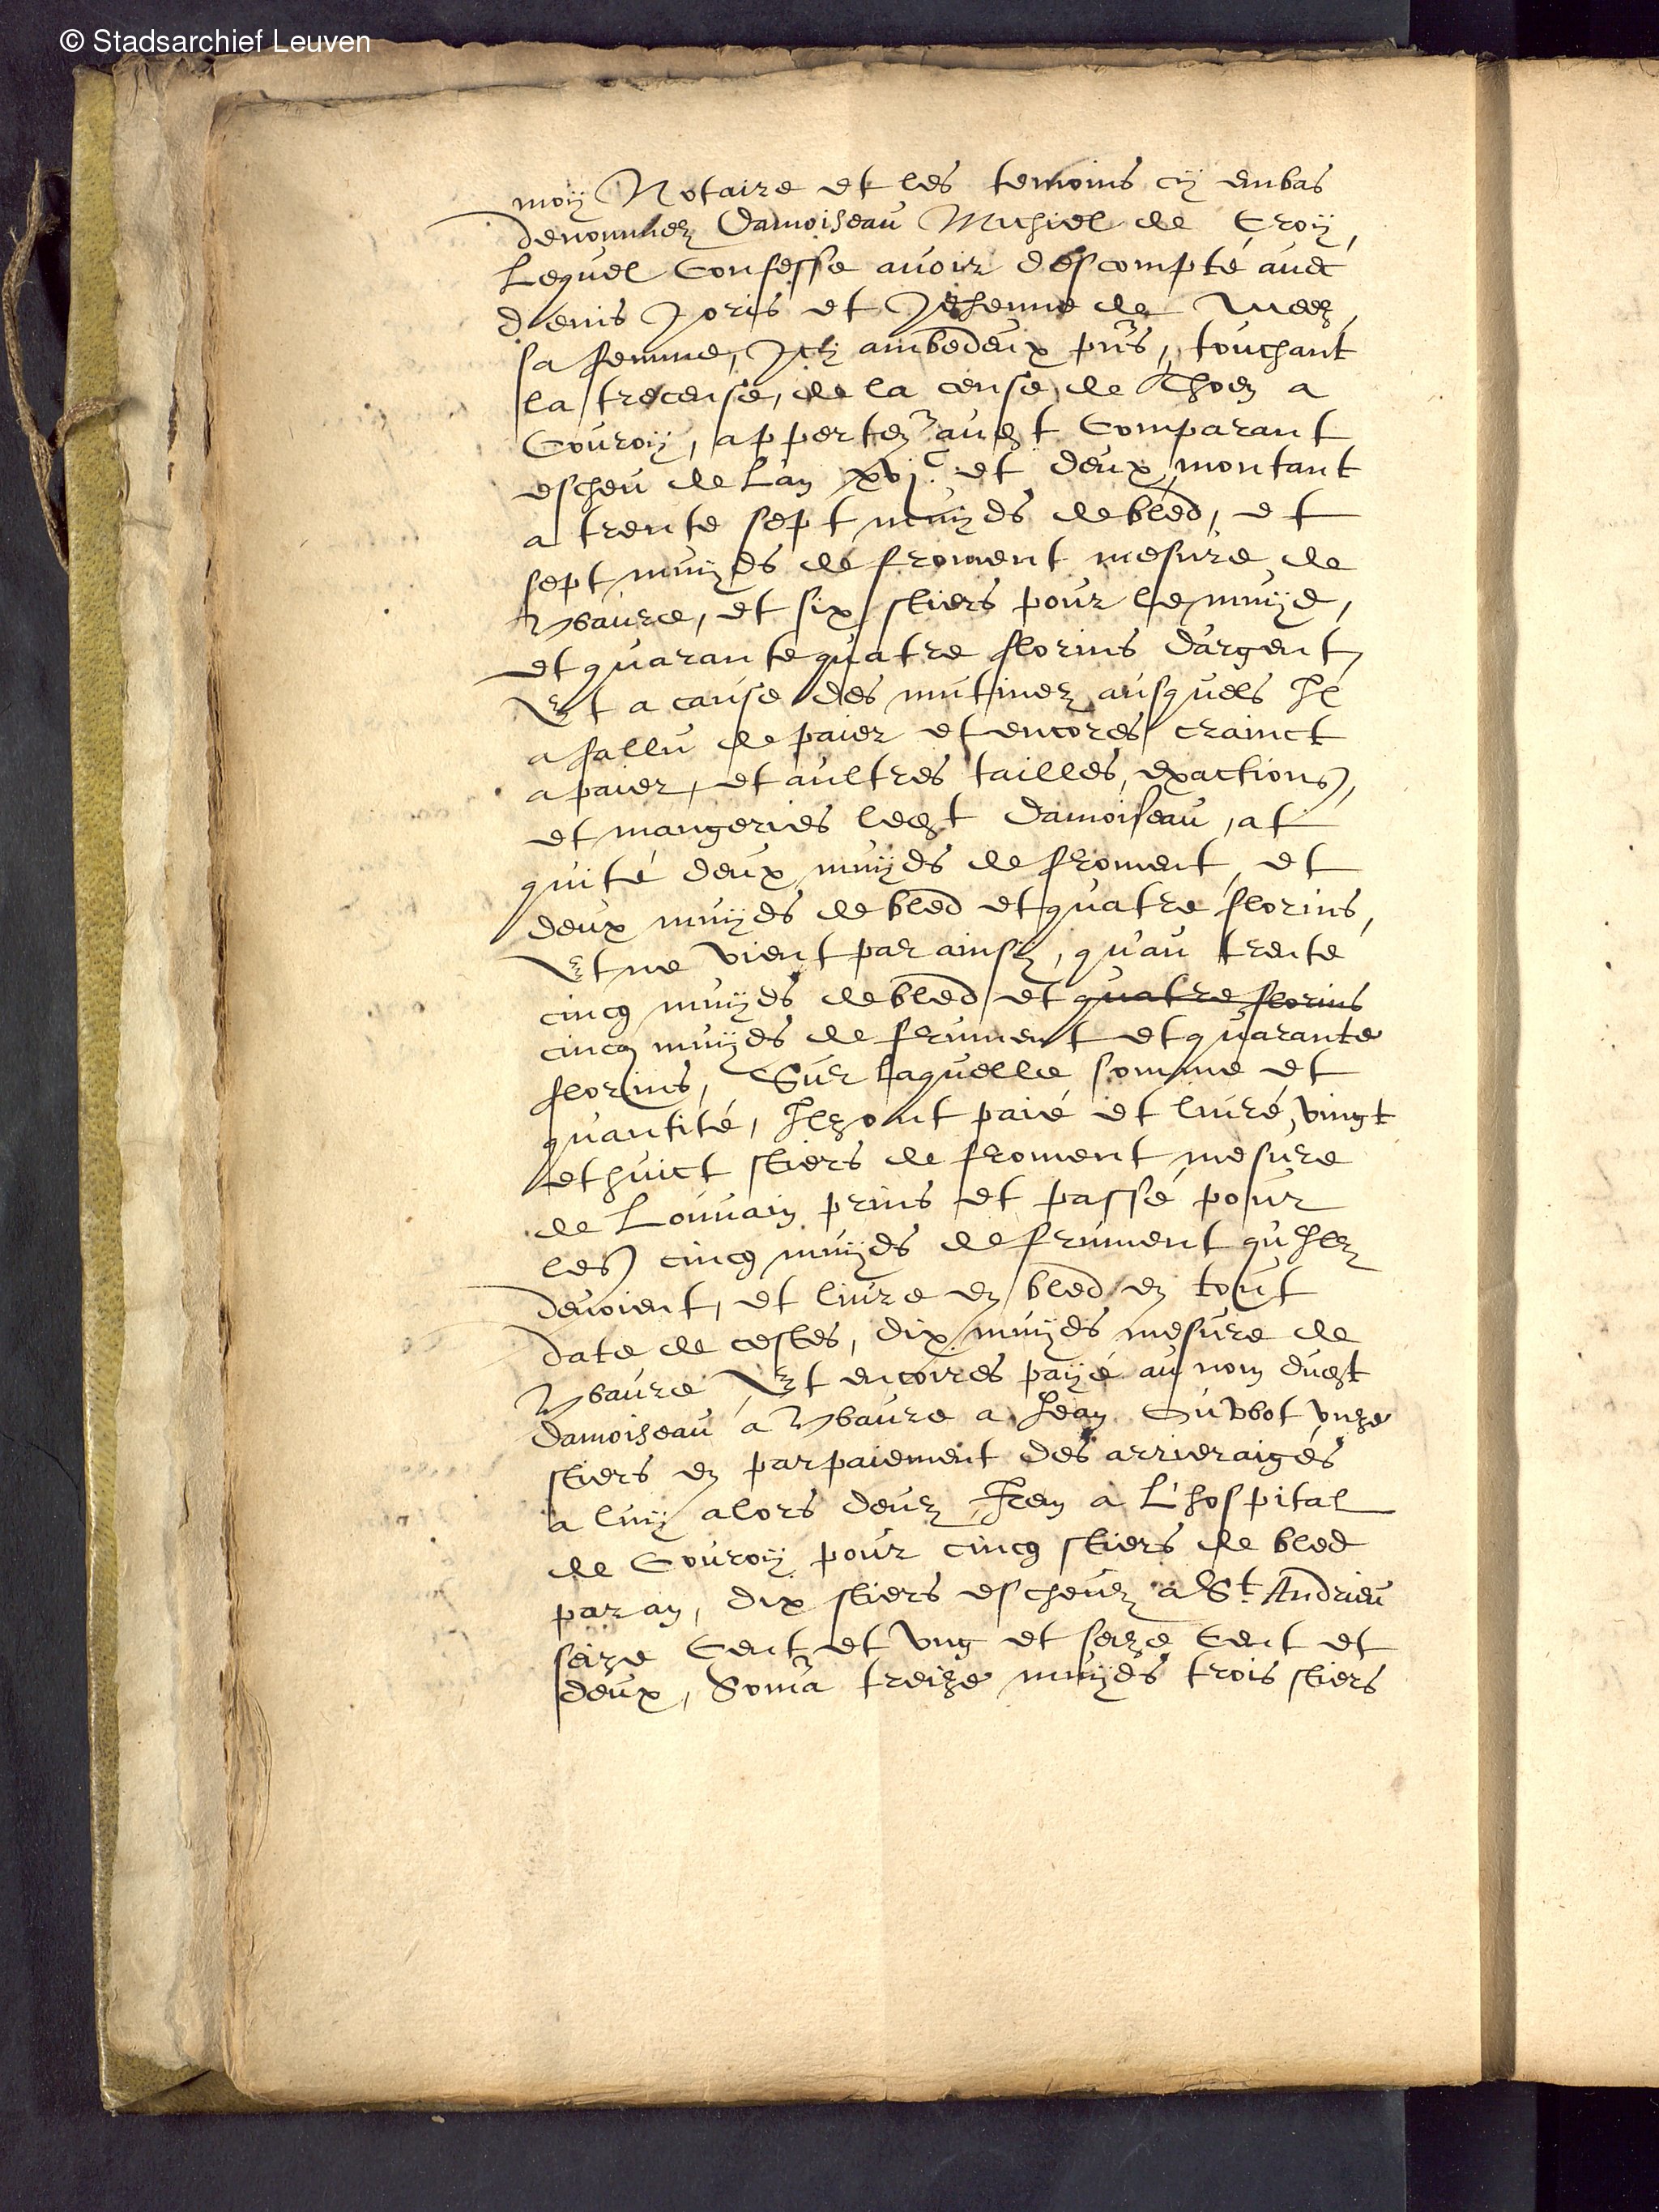 © Stadsarchief Leuven
moÿ Notaire et les temoins cÿ embas
denommez Damoiseau Michiel de Croÿ,
Lequel Confesse avoir descompté avec
denis Joris et Jehenne de
sa femme, Icÿ ambedeux pñs, touchant
la trecense, de la cense de Thoen a
Couroÿ, apperten audt Comparant
escheu de L'an xvjc et deux montant
a trente sept muÿds de bled, et
sept muÿds de froment mesure de
Wavre, et six stiers pour le muÿd,
et quarante quatre florins d'argent
Et a cause des mutinez ausquels Il
a fallu de paier et encores crainct
a paier, et aultres tailles, exactions,
et mangeries ledt Damoiseau, at
quité deux muÿds de froment, et
deux muÿds de bled et quatre florins,
Et ne vient par ainsy, qu'au trente
cincq muÿds de bled et quatre florins
cincq muÿds de frument et quarante
florins, Sur laquelle somme et
quantité, Ilz ont paié et livré, vingt
et huict stiers de froment mesure
de Louvain prins et passé pour
les cincq muÿds de frument qu'Ilz
devoient, et livre en bled en tout
date de cestes, dix muÿds mesure de
Wavre Et encoires payé au nom dudt
Damoiseau a Wavre a Jean unze
stiers en parpaiement des arrieraigés
a luÿ alors deuz Item a L'hospital
de Couroÿ pour cincq stiers de bled
par an, dix stiers escheuz a St Andrieu
seize Cent et ung et seize Cent et
deux, Soma treize muÿds trois stiers